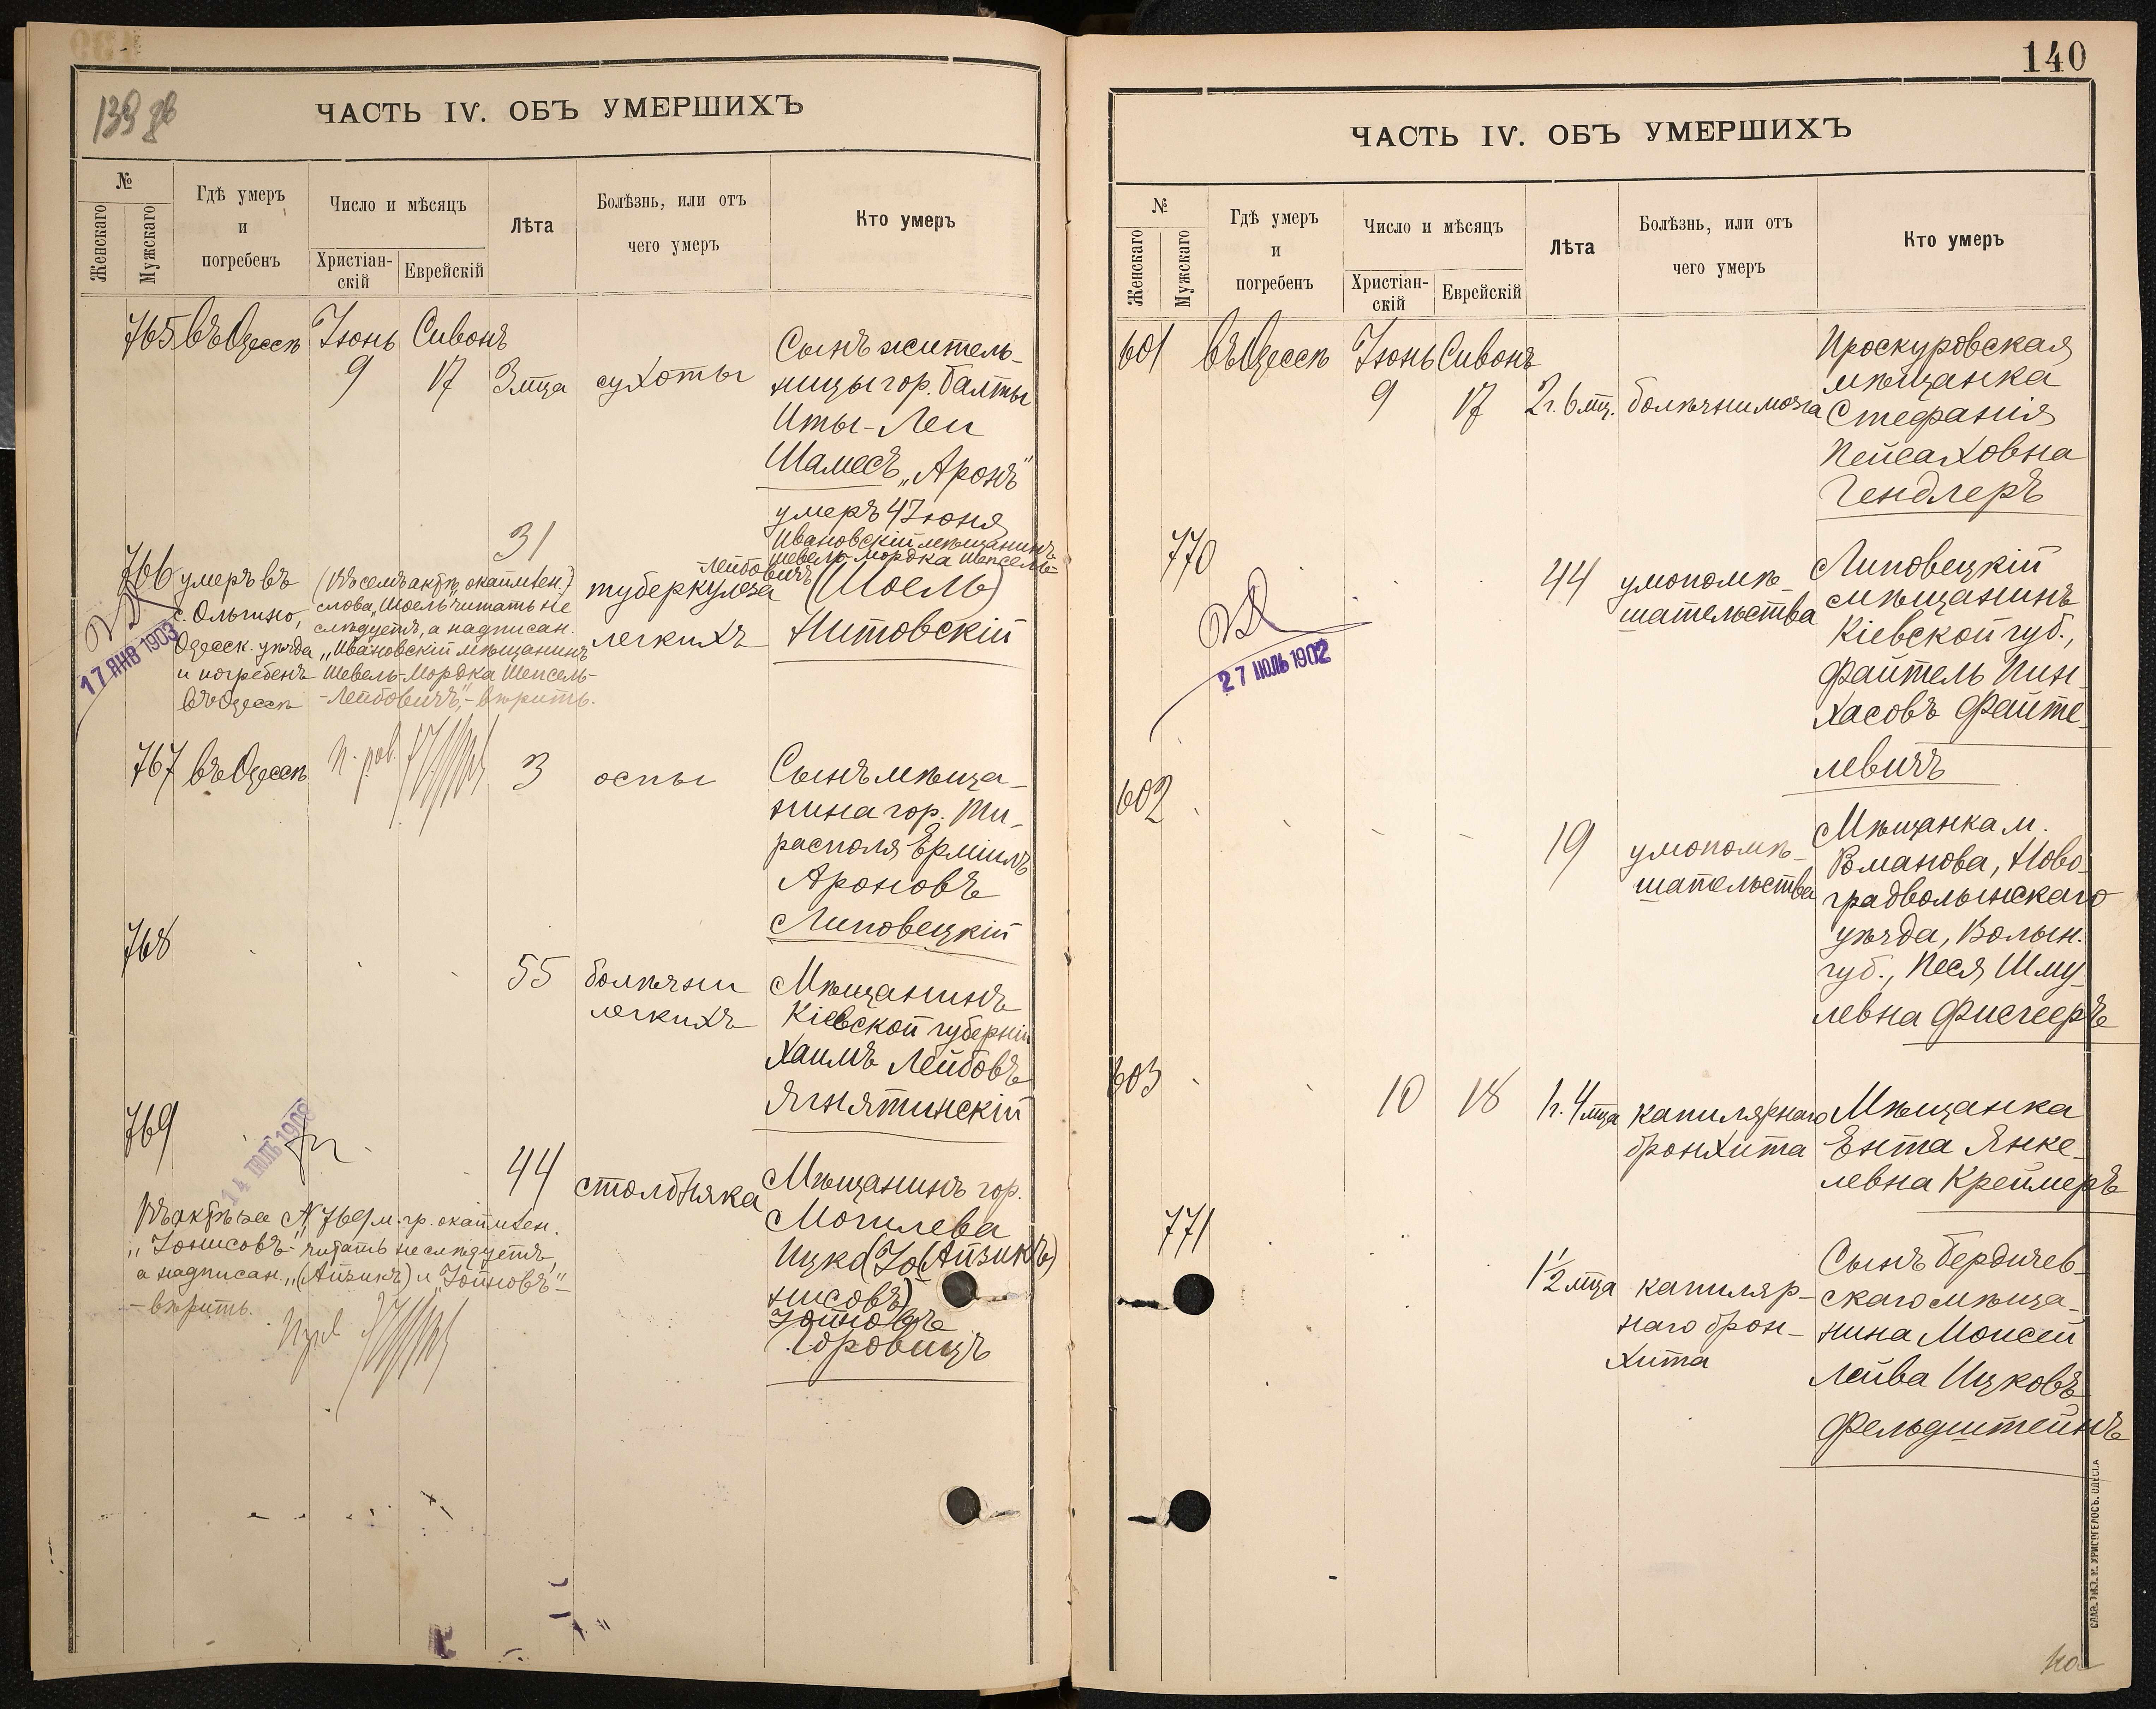 139 об
ЧАСТЬ IV. ОБЪ УМЕРШИХЪ
№
Женскаго
Мужскаго
Гдѣ умеръ
и
погребенъ
Число и мѣсяцъ
Христіан-
скій
Еврейскій
Лѣта
Болѣзнь, или отъ
чего умеръ
Кто умеръ
765 въ Одессѣ Іюнь Сивонъ
9 17 3 мца сухоты
Сынъ житель-
ницы гор. Балты
Иты-Леи
Шамесъ „Аронъ"
умеръ 4 Іюня
766 умеръ въ
с. Ольгино,
Одесск. уѣзда
и погребенъ
въ Одессѣ
17 ЯНВ 1903
(Въ семъ актѣ окаймлен.)
слова „Шоель" читать не
слѣдуетъ, а надписан.
„Ивановскій мѣщанинъ
Шевель-Мордка Шепсель-
-Лейбовичъ",- вѣрить.
31
туберкулеза
легкихъ
Ивановскій мѣщанинъ
Шевель-Мордка Шепсель-
Лейбовичъ
(Шоель)
Нитовскій
767 въ Одессѣ
3 оспы
Сынъ мѣща-
нина гор. Ти-
располя Ермилъ
Ароновъ
Липовецкій
768
55 болѣзни
легкихъ
Мѣщанинъ
Кіевской губерніи
Хаимъ Лейбовъ
Ягнятинскій
769
14 ІЮЛЬ
44 столбняка
Мѣщанинъ гор.
Могилева
Ицко (Іо(Айзикъ)
нисовъ)
Іойновъ
Горовицъ
Въ актѣ за № 769 м. гр. окаймлен.
„Іонисовъ"- читать не слѣдуетъ,
а надписан. „(Айзикъ) и „Іойновъ"-
- вѣрить.
140
ЧАСТЬ IV. ОБЪ УМЕРШИХЪ
№
Женскаго
Мужскаго
Гдѣ умеръ
и
погребенъ
Число и мѣсяцъ
Христіан-
скій
Еврейскій
Лѣта
Болѣзнь, или отъ
чего умеръ
Кто умеръ
601 въ Одессѣ Іюнь Сивонъ
9 17 2 г. 6 мц. болѣзни мозга
Проскуровская
мѣщанка
Стефанія
Пейсаховна
Гендлеръ
770
27 ІЮЛЬ 1902
44 умопомѣ-
шательства
Липовецкій
мѣщанинъ
Кіевской губ.,
Файтель Пин-
хасовъ Файте-
левичъ
602
19 умопомѣ-
шательства
Мѣщанка м.
Романова, Ново-
градволынскаго
уѣзда, Волын.
губ., Песя Шму-
левна Фисгееръ
603
10 18 1 г. 4 мца капилярнаго
бронхита
Мѣщанка
Ента Янке-
левна Креймеръ
771
1½ мца капиляр-
наго брон-
хита
Сынъ Бердичев-
скаго мѣща-
нина Моисей
Лейва Ицковъ
Фельдштейнъ